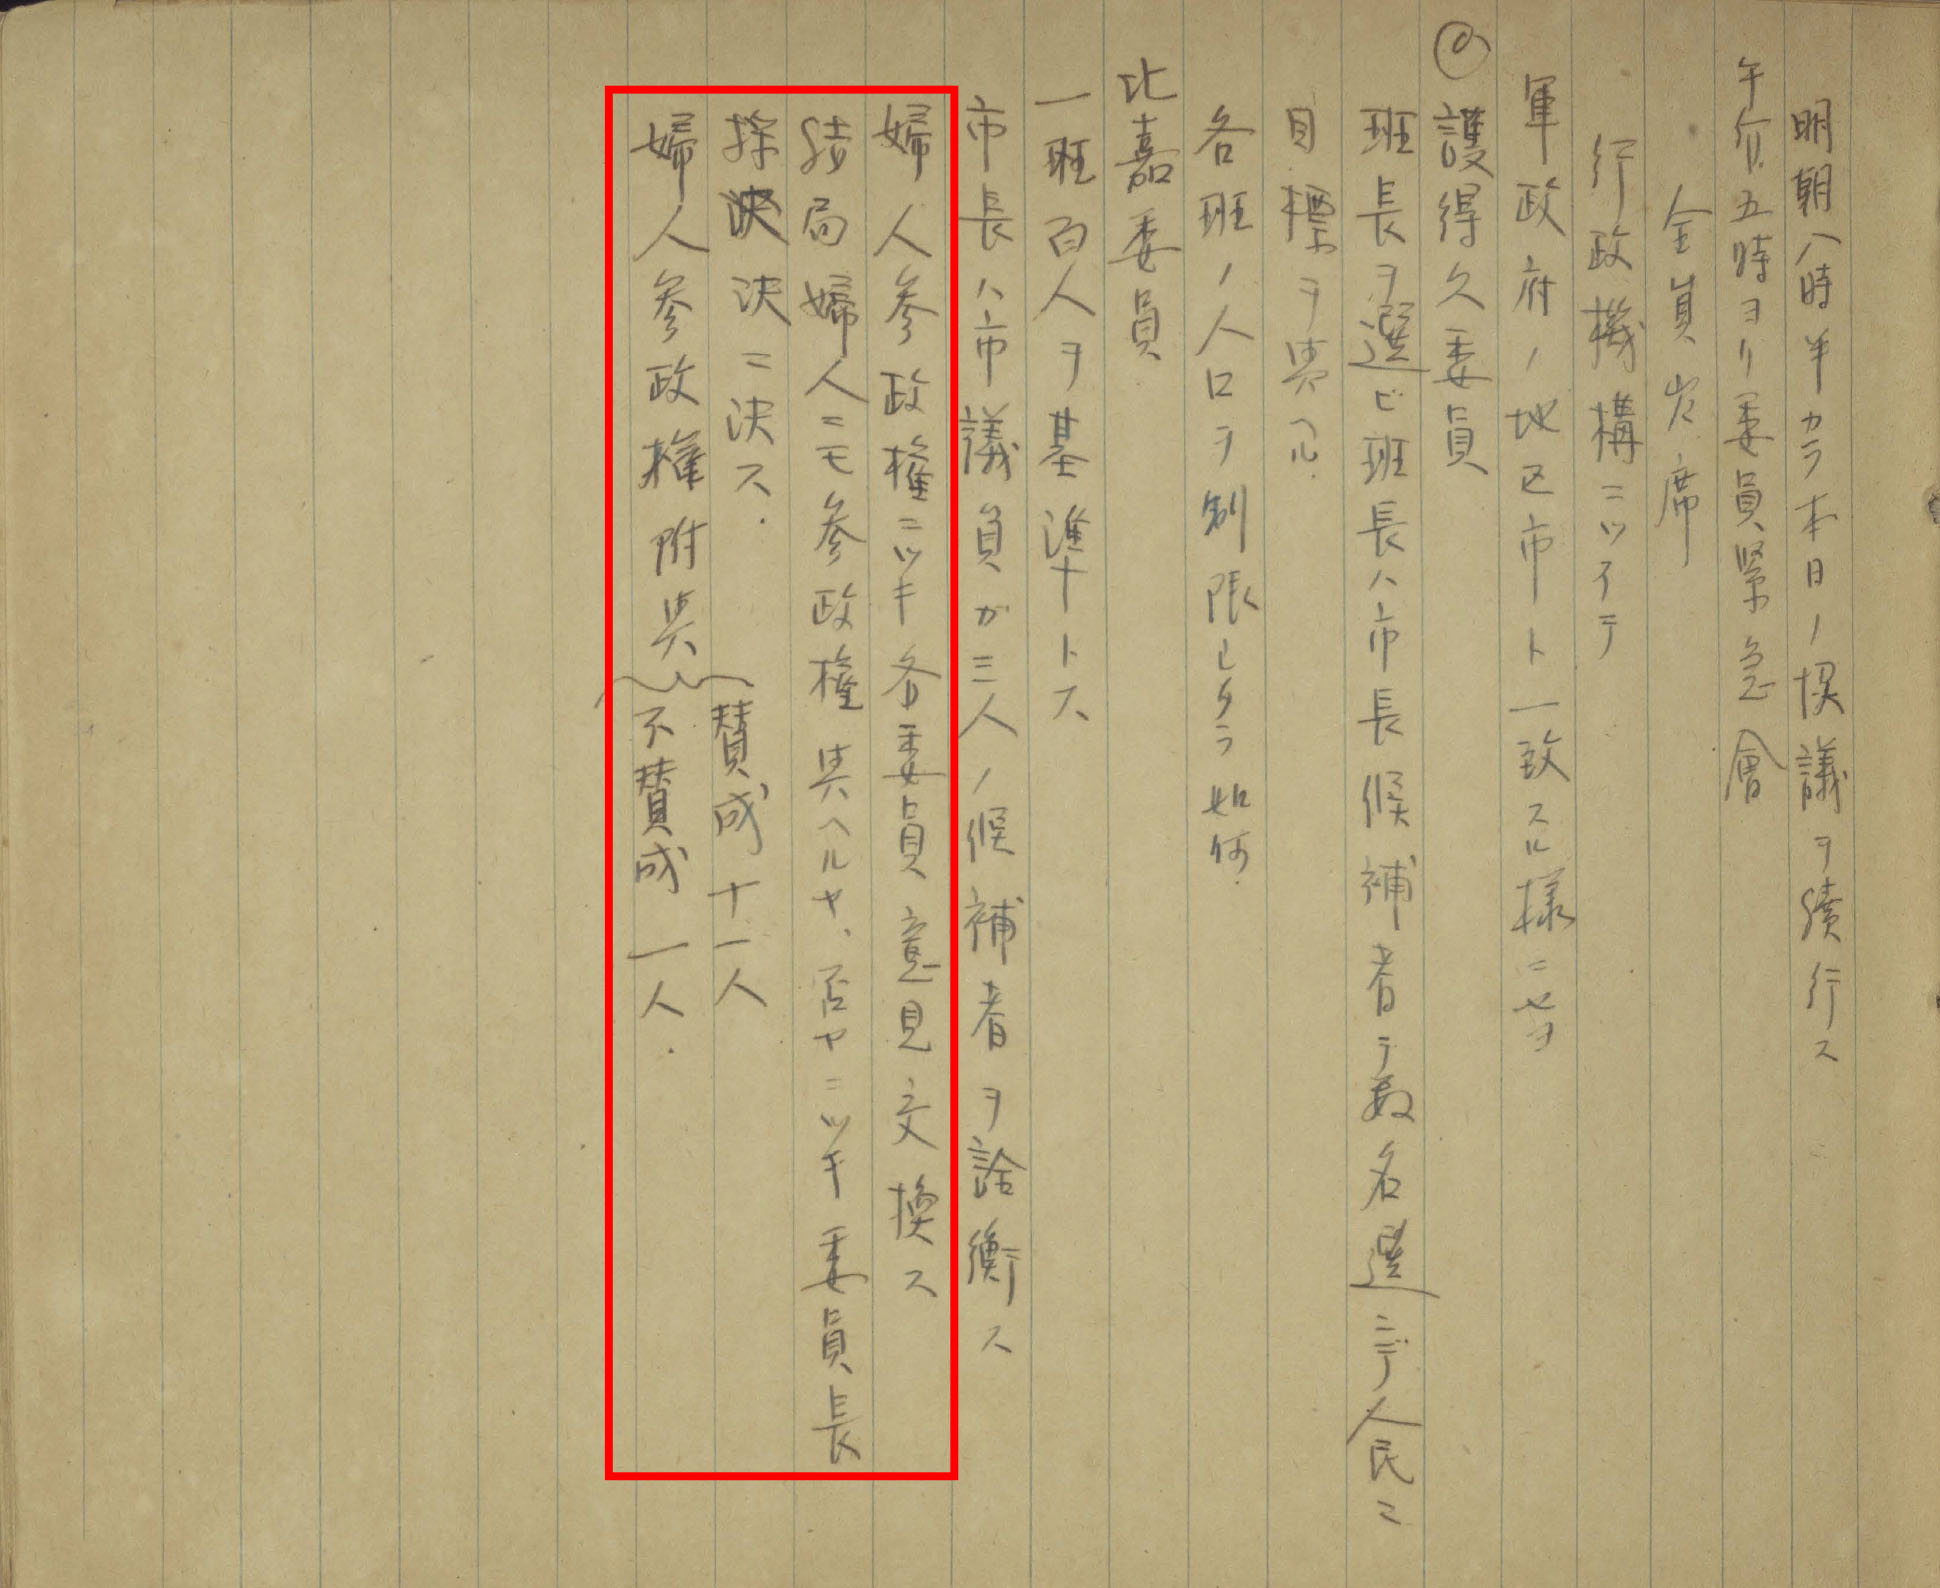 明朝八時半カラ本日ノ協議ヲ続行ス
午后五時ヨリ委員緊急會
全員出席
行政機構ニツイテ
軍政府ノ地区市ト一致スル様ニセヨ
護得久委員
班長ヲ選ビ班長ハ市長候補者ヲ数名選ンデ人民ニ
目標ヲ与ヘル.
各班ノ人口ヲ制限シタラ如何.
比嘉委員
一班百人ヲ基準トス
市長ハ市議員ガ三人ノ候補者ヲ詮衡ス
婦人参政権ニツキ各委員意見交換ス
結局婦人ニモ参政権与ヘルヤ、否ヤニツキ委員長
採決ニ決ス.
婦人参政権附与
賛成十一人
不賛成一人.